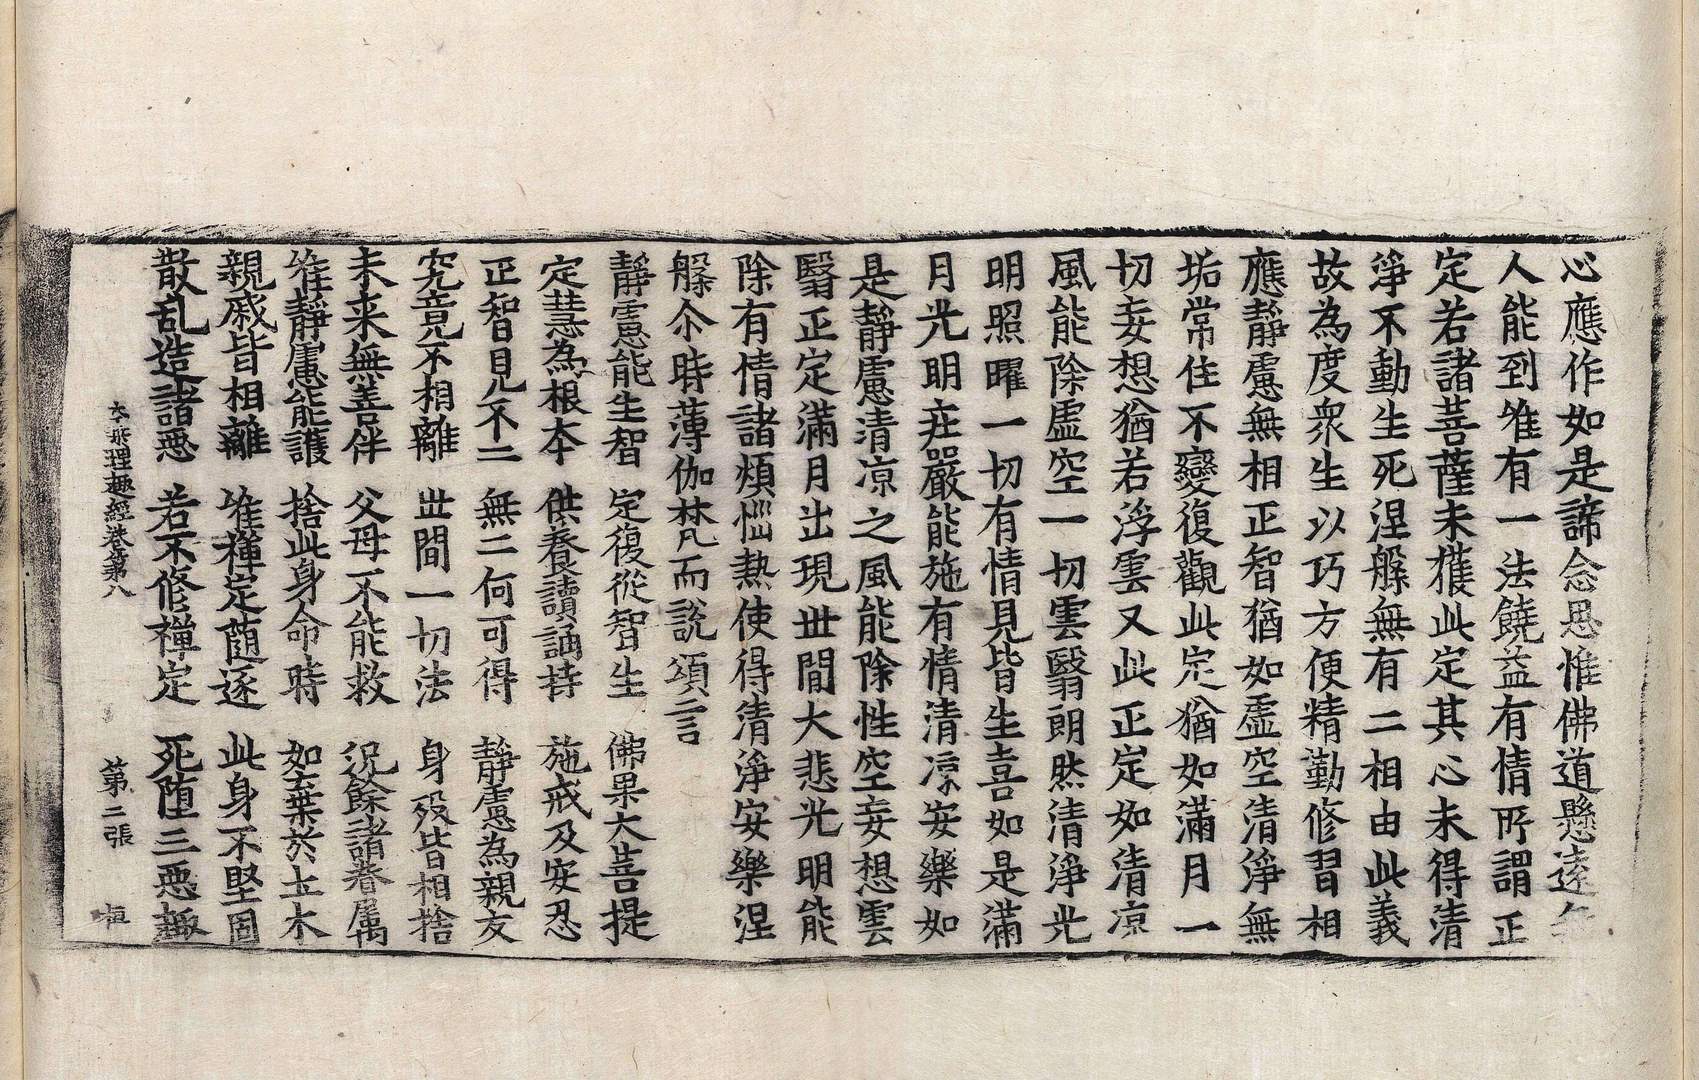 心應作如是諦念思惟佛道懸遠無
人能到唯有一法饒益有情所謂正
定若諸菩薩未獲此定其心未得清
淨不動生死涅槃無有二相由此義
故為度衆生以巧方便精勤修習相
應靜慮無相正智猶如虛空清淨無
垢常住不變復觀此定猶如滿月一
切妄想猶若浮雲又此正定如清凉
風能除虛空一切雲翳朗然清淨光
明照曜一切有情見皆生喜如是滿
月光明莊嚴能施有情清凉安樂如
是靜慮清凉之風能除性空妄想雲
翳正定滿月出現世間大悲光明能
除有情諸煩惱熱使得清淨安樂涅
槃尒時薄伽梵而說頌言
靜慮能生智　定復從智生　佛果大菩提
定慧為根本　供養讀誦持　施戒及安忍
正智見不二　無二何可得　靜慮為親友
究竟不相離　世間一切法　身歿皆相捨
未来無善伴　父母不能救　況餘諸眷属
唯靜慮能護　捨此身命時　如棄於土木
親戚皆相離　唯禪定随逐　此身不堅固
散乱造諸惡　若不修禪定　死堕三惡趣
六波理趣經卷第八　第二張